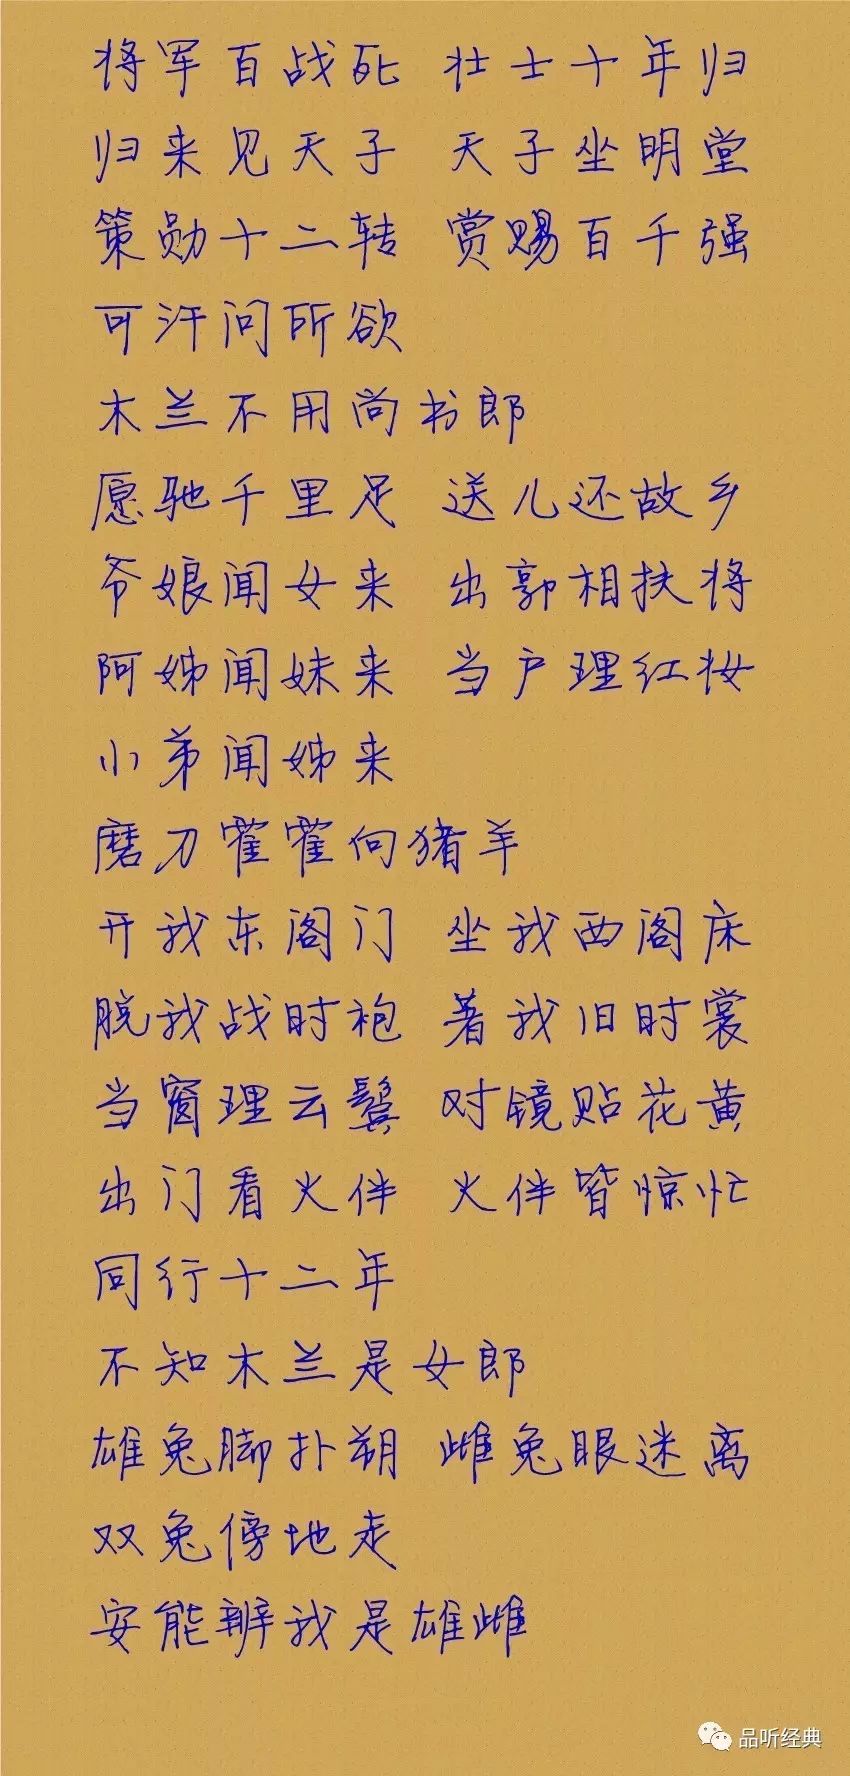 将军百战死 壮士十年归
归来见天子 天子坐明堂
策勋十二转 赏赐百千强
可汗问所欲
木兰不用尚书郎
愿驰千里足 送儿还故乡
爷娘闻女来 出郭相扶将
阿姊闻妹来 当户理红妆
小弟闻姊来
磨刀霍霍向猪羊
开我东阁门 坐我西阁床
脱我战时袍 著我旧时裳
当窗理云鬓 对镜贴花黄
出门看火伴 火伴皆惊忙
同行十二年
不知木兰是女郎
雄兔脚扑朔 雌兔眼迷离
双兔傍地走
安能辨我是雄雌
品听经典